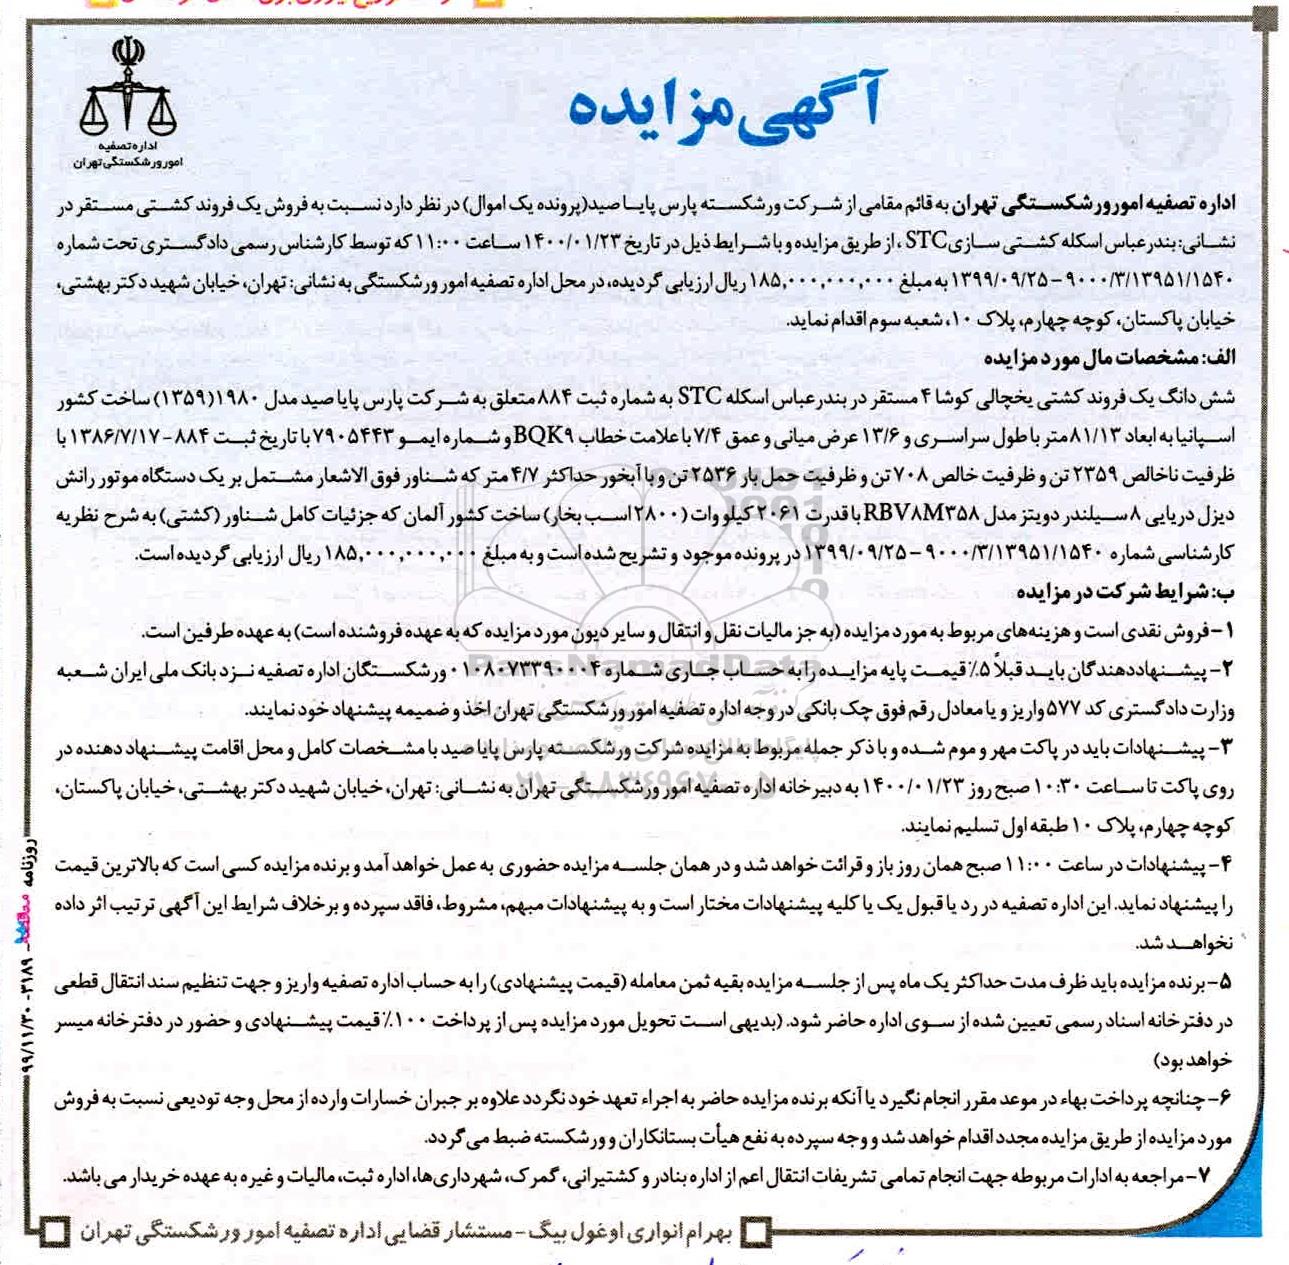 اداره تصفیه
امور ورشکستگی تهران
آگهی مزایده
اداره تصفیه امور ورشکستگی تهران به قائم مقامی از شرکت ورشکسته پارس پایا صید(پرونده یک اموال) در نظر دارد نسبت به فروش یک فروند کشتی مستقر در
نشانی: بندرعباس اسکله کشتی سازی STC ، از طریق مزایده و با شرایط ذیل در تاریخ ۱۴۰۰/۰۱/۲۳ ساعت ۱۱:۰۰ که توسط کارشناس رسمی دادگستری تحت شماره
۹۰۰۰/۳/۱۳۹۵۱/۱۵۴۰ – ۱۳۹۹/۰۹/۲۵ به مبلغ ۱۸۵,۰۰۰,۰۰۰,۰۰۰ ریال ارزیابی گردیده، در محل اداره تصفیه امور ورشکستگی به نشانی: تهران، خیابان شهید دکتر بهشتی،
خیابان پاکستان، کوچه چهارم، پلاک ۱۰، شعبه سوم اقدام نماید.
الف: مشخصات مال مورد مزایده
شش دانگ یک فروند کشتی یخچالی کوشا ۴ مستقر در بندرعباس اسکله STC به شماره ثبت ۸۸۴ متعلق به شرکت پارس پایا صید مدل ۱۹۸۰(۱۳۵۹) ساخت کشور
اسپانیا به ابعاد ۸۱/۱۳ متر با طول سراسری و ۱۳/۶ عرض میانی و عمق ۷/۴ با علامت خطاب BQK۹ و شماره ایمو ۷۹۰۵۴۴۳ با تاریخ ثبت ۸۸۴-۱۳۸۶/۷/۱۷ با
ظرفیت ناخالص ۲۳۵۹ تن و ظرفیت خالص ۷۰۸ تن و ظرفیت حمل بار ۲۵۳۶ تن و با آبخور حداکثر ۴/۷ متر که شناور فوق الاشعار مشتمل بر یک دستگاه موتور رانش
دیزل دریایی ۸ سیلندر دویتز مدل RBV۸M۳۵۸ با قدرت ۲۰۶۱ کیلو وات (۲۸۰۰ اسب بخار) ساخت کشور آلمان که جزئیات کامل شناور (کشتی) به شرح نظریه
کارشناسی شماره ۹۰۰۰/۳/۱۳۹۵۱/۱۵۴۰ – ۱۳۹۹/۰۹/۲۵ در پرونده موجود و تشریح شده است و به مبلغ ۱۸۵,۰۰۰,۰۰۰,۰۰۰ ریال ارزیابی گردیده است.
ب: شرایط شرکت در مزایده
۱- فروش نقدی است و هزینه‌های مربوط به مورد مزایده (به جز مالیات نقل و انتقال و سایر دیون مورد مزایده که به عهده فروشنده است) به عهده طرفین است.
۲- پیشنهاددهندگان باید قبلاً ۵٪ قیمت پایه مزایده را به حساب جاری شماره ۰۱۰۸۰۷۳۳۹۰۰۰۴ ورشکستگان اداره تصفیه نزد بانک ملی ایران شعبه
وزارت دادگستری کد ۵۷۷ واریز و یا معادل رقم فوق چک بانکی در وجه اداره تصفیه امور ورشکستگی تهران اخذ و ضمیمه پیشنهاد خود نمایند.
۳- پیشنهادات باید در پاکت مهر و موم شده و با ذکر جمله مربوط به مزایده شرکت ورشکسته پارس پایا صید با مشخصات کامل و محل اقامت پیشنهاد دهنده در
روی پاکت تا ساعت ۱۰:۳۰ صبح روز ۱۴۰۰/۰۱/۲۳ به دبیرخانه اداره تصفیه امور ورشکستگی تهران به نشانی: تهران، خیابان شهید دکتر بهشتی، خیابان پاکستان،
کوچه چهارم، پلاک ۱۰ طبقه اول تسلیم نمایند.
۴- پیشنهادات در ساعت ۱۱:۰۰ صبح همان روز باز و قرائت خواهد شد و در همان جلسه مزایده حضوری به عمل خواهد آمد و برنده مزایده کسی است که بالاترین قیمت
را پیشنهاد نماید. این اداره تصفیه در رد یا قبول یک یا کلیه پیشنهادات مختار است و به پیشنهادات مبهم، مشروط، فاقد سپرده و برخلاف شرایط این آگهی ترتیب اثر داده
نخواهد شد.
۵- برنده مزایده باید ظرف مدت حداکثر یک ماه پس از جلسه مزایده بقیه ثمن معامله (قیمت پیشنهادی) را به حساب اداره تصفیه واریز و جهت تنظیم سند انتقال قطعی
در دفترخانه اسناد رسمی تعیین شده از سوی اداره حاضر شود. (بدیهی است تحویل مورد مزایده پس از پرداخت ۱۰۰٪ قیمت پیشنهادی و حضور در دفترخانه میسر
خواهد بود)
۶- چنانچه پرداخت بهاء در موعد مقرر انجام نگیرد یا آنکه برنده مزایده حاضر به اجراء تعهد خود نگردد علاوه بر جبران خسارات وارده از محل وجه تودیعی نسبت به فروش
مورد مزایده از طریق مزایده مجدد اقدام خواهد شد و وجه سپرده به نفع هیأت بستانکاران و ورشکسته ضبط می‌گردد.
۷- مراجعه به ادارات مربوطه جهت انجام تمامی تشریفات انتقال اعم از اداره بنادر و کشتیرانی، گمرک، شهرداری‌ها، اداره ثبت، مالیات و غیره به عهده خریدار می باشد.
بهرام انواری اوغول بیگ - مستشار قضایی اداره تصفیه امور ورشکستگی تهران
روزنامه
۳۱۸۹ - ۹۹/۱۱/۳۰
ParsNamadData
پایگاه اطلاع رسانی مناقصه و مزایده
۰۲۱-۸۸۳۴۹۶۷۰-۵